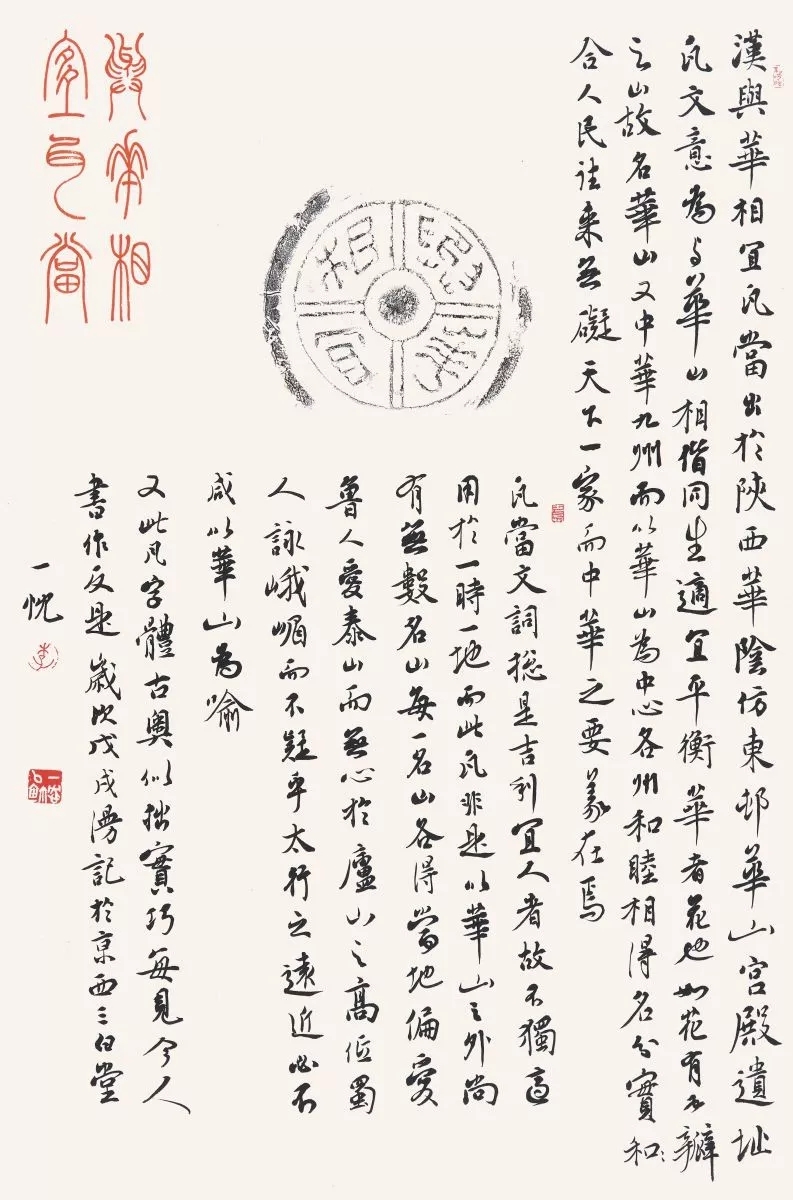 漢與華相宜瓦當出於陝西華陰仿東邨華山宮殿遺址
瓦文意為与華山相偕同生適宜平衡華者花也如花有五瓣
之山故名華山又中華九州而以華山為中心各州和睦相得名分實和
合人民往来無礙天下一家而中華之要義在焉
與華相宜
瓦當文詞總是吉利宜人者故不獨適
用於一時一地而此瓦非是以華山之外尚
有無數名山每一名山各得當地偏愛
魯人愛泰山而無心於廬山之高位蜀
人詠峨嵋而不疑乎太行之遠近必不
咸以華山為喻
與華相
宜瓦當
又此瓦字體古奧似拙實巧每見今人
書作反是歲次戊戌漫記於京西三白堂
一忱